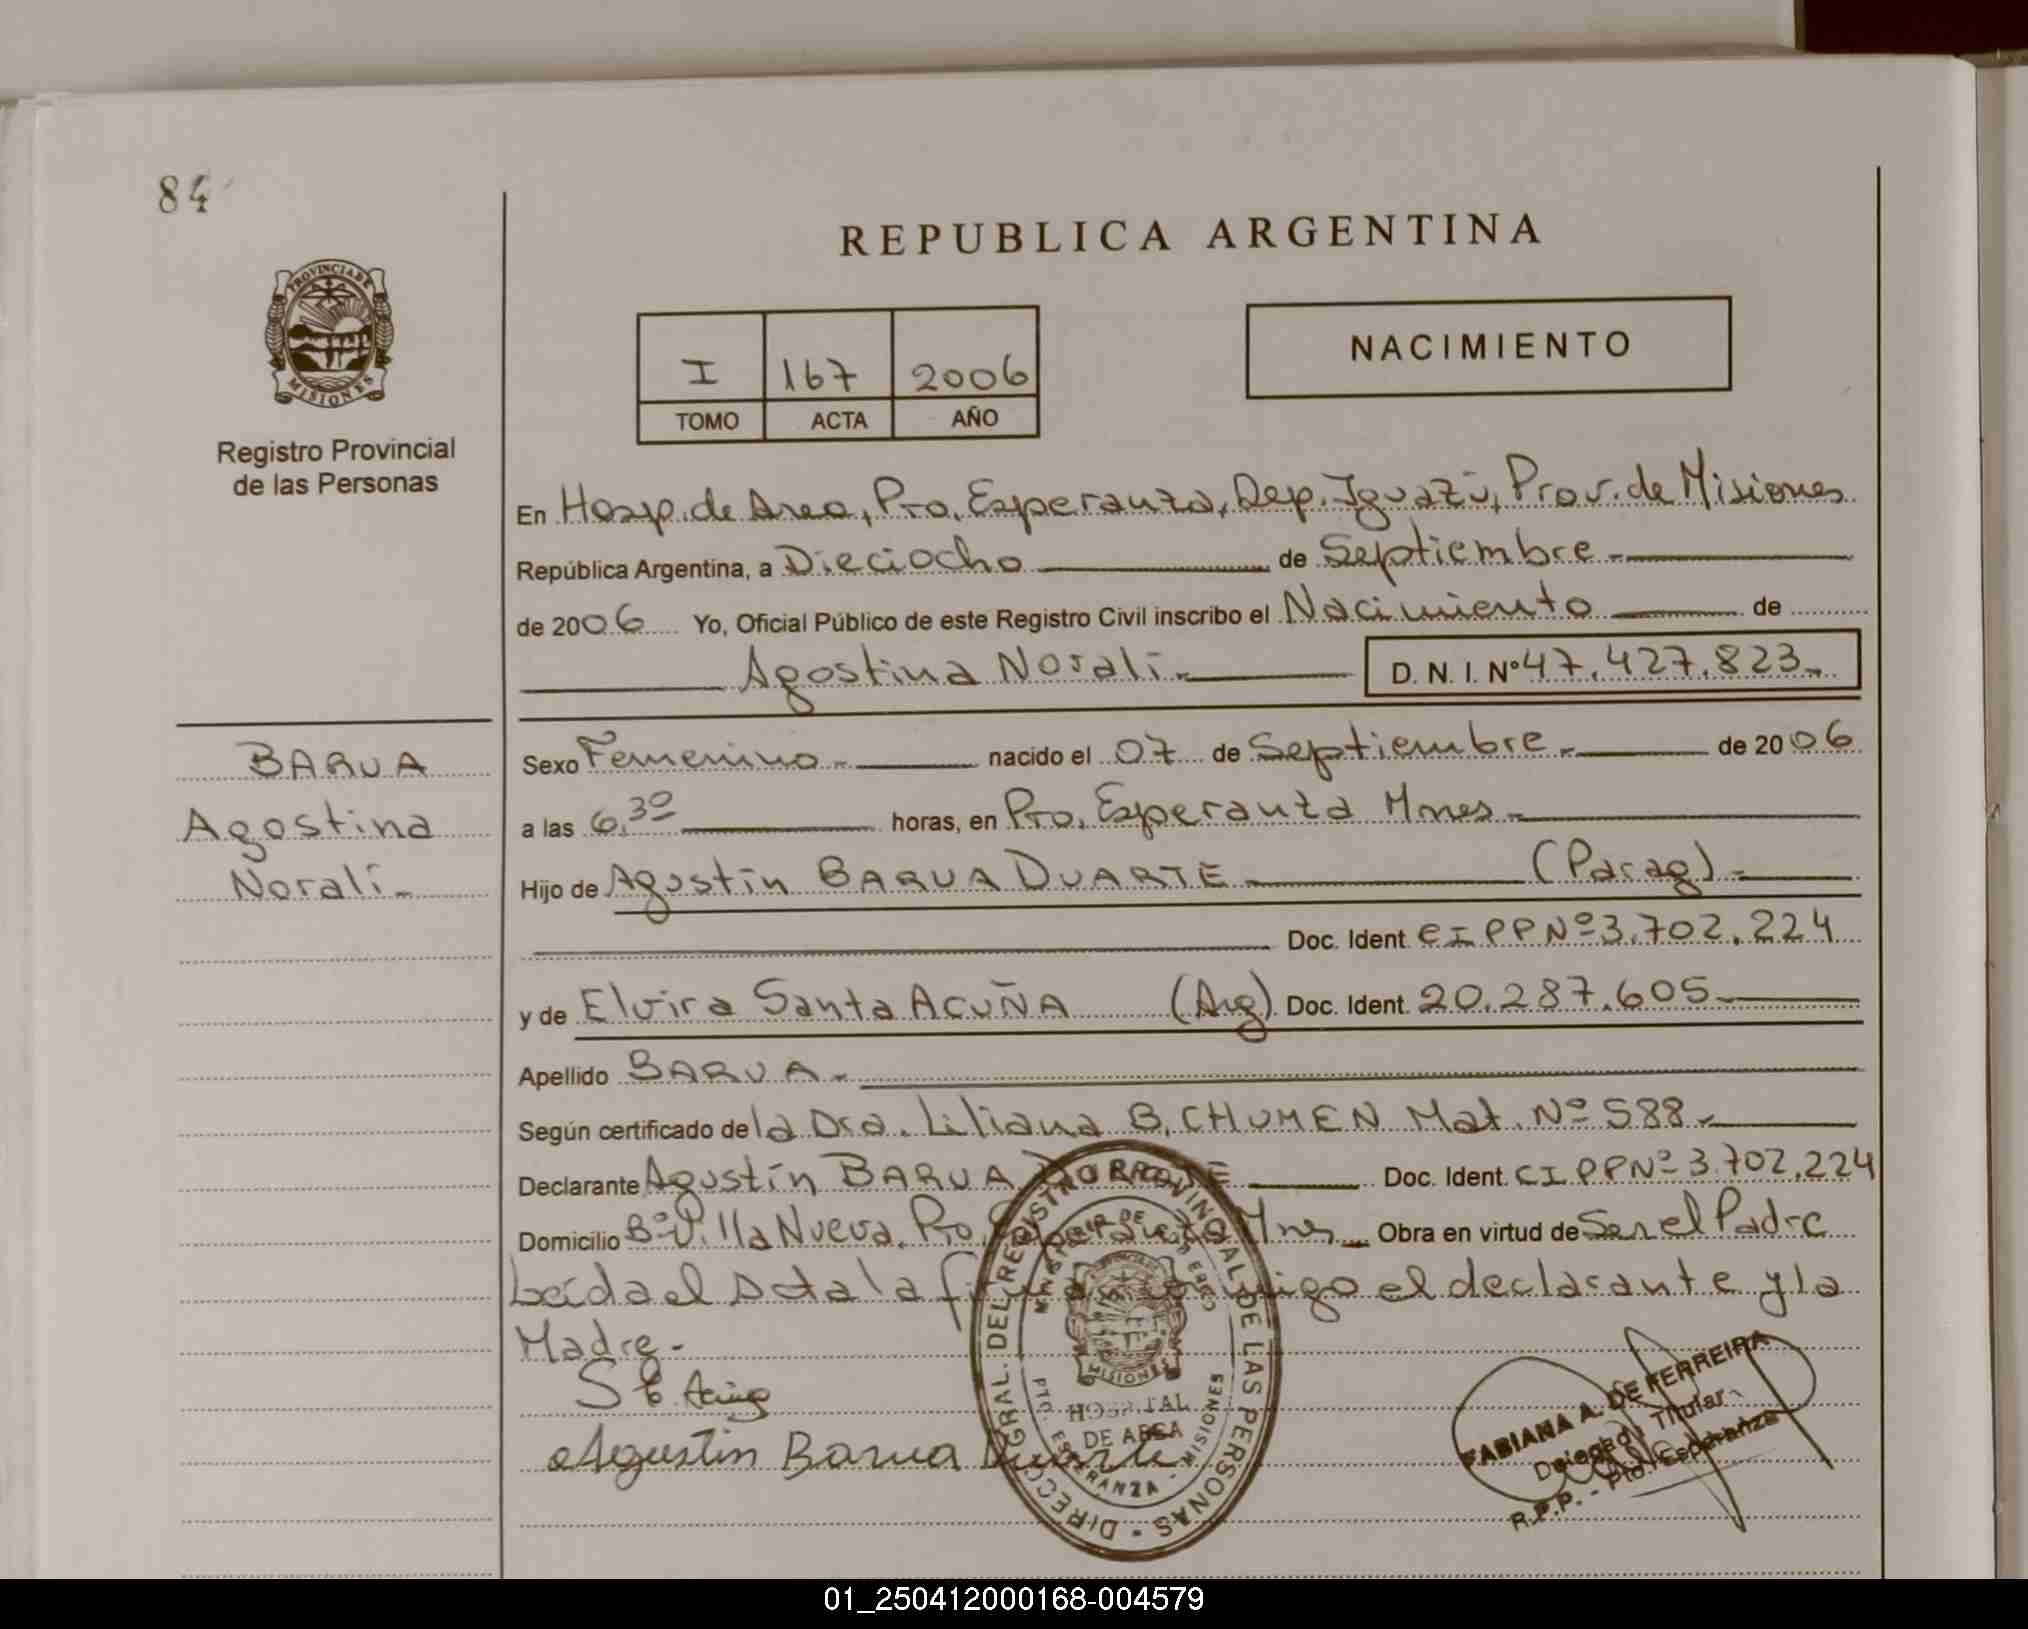 84
REPUBLICA ARGENTINA
PROVINCIA DE
MISIONES
Registro Provincial
de las Personas
I 167 2006
TOMO ACTA AÑO
NACIMIENTO
En Hosp. de Area, Pto. Esperanza, Dep. Iguazú, Prov. de Misiones
República Argentina, a Dieciocho de Septiembre.-
de 2006 Yo, Oficial Público de este Registro Civil inscribo el Nacimiento de
Agostina Noralí.- D. N. I. Nº 47.427.823.-
BARUA
Agostina
Noralí.-
Sexo Femenino.- nacido el 07 de Septiembre.- de 2006
a las 6,30 horas, en Pto. Esperanza Mnes.-
Hijo de Agustín BARUA DUARTE (Parag).-
Doc. Ident. CI PP Nº 3.702.224
y de Elvira Santa ACUÑA (Arg). Doc. Ident. 20.287.605.-
Apellido BARUA.-
Según certificado de la Dra. Liliana B. CHUMEN Mat. Nº 588.-
Declarante Agustín BARUA DUARTE Doc. Ident. CI PP Nº 3.702.224
Domicilio Bº Villa Nueva. Pto. Esperanza Mnes Obra en virtud de Ser el Padre
Leída el Acta la firman conmigo el declarante y la
Madre.-
Agustin Barua Duarte
DIRECC. GRAL. DEL REGISTRO PROVINCIAL DE LAS PERSONAS
MISIONES
HOSPITAL
DE AREA
PTO. ESPERANZA - MISIONES
FABIANA A. DE FERREIRA
Delegada Titular
R.P.P. - Pto. Esperanza
01_250412000168-004579